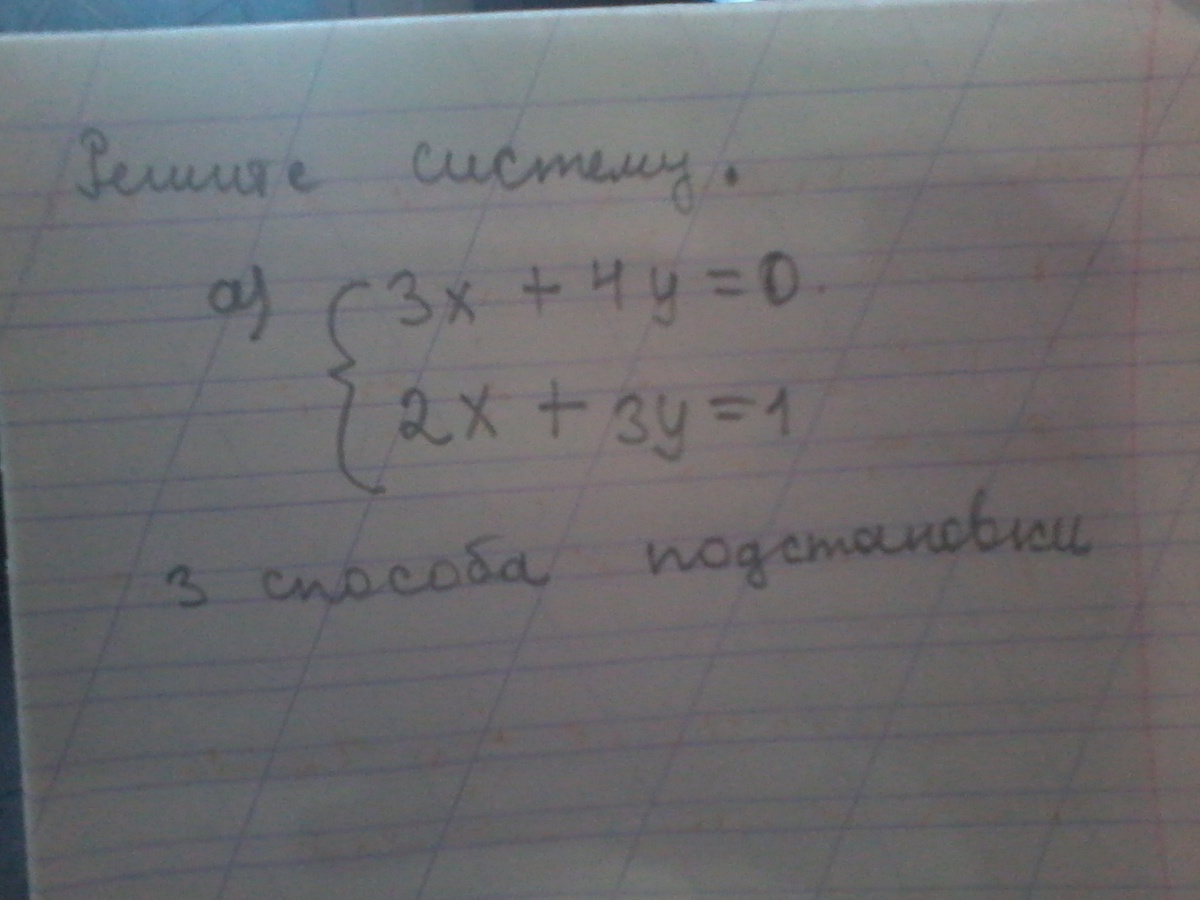 Решите систему.
а) { 3x + 4y = 0.
2x + 3y = 1
3 способа подстановки